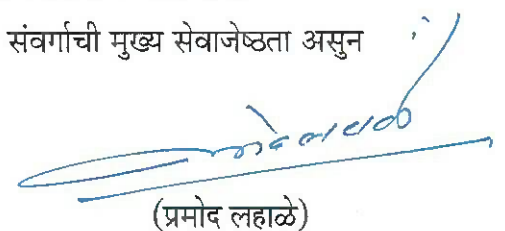 संवर्गाची मुख्य सेवाजेष्ठता असुन
(प्रमोद लहाळे)